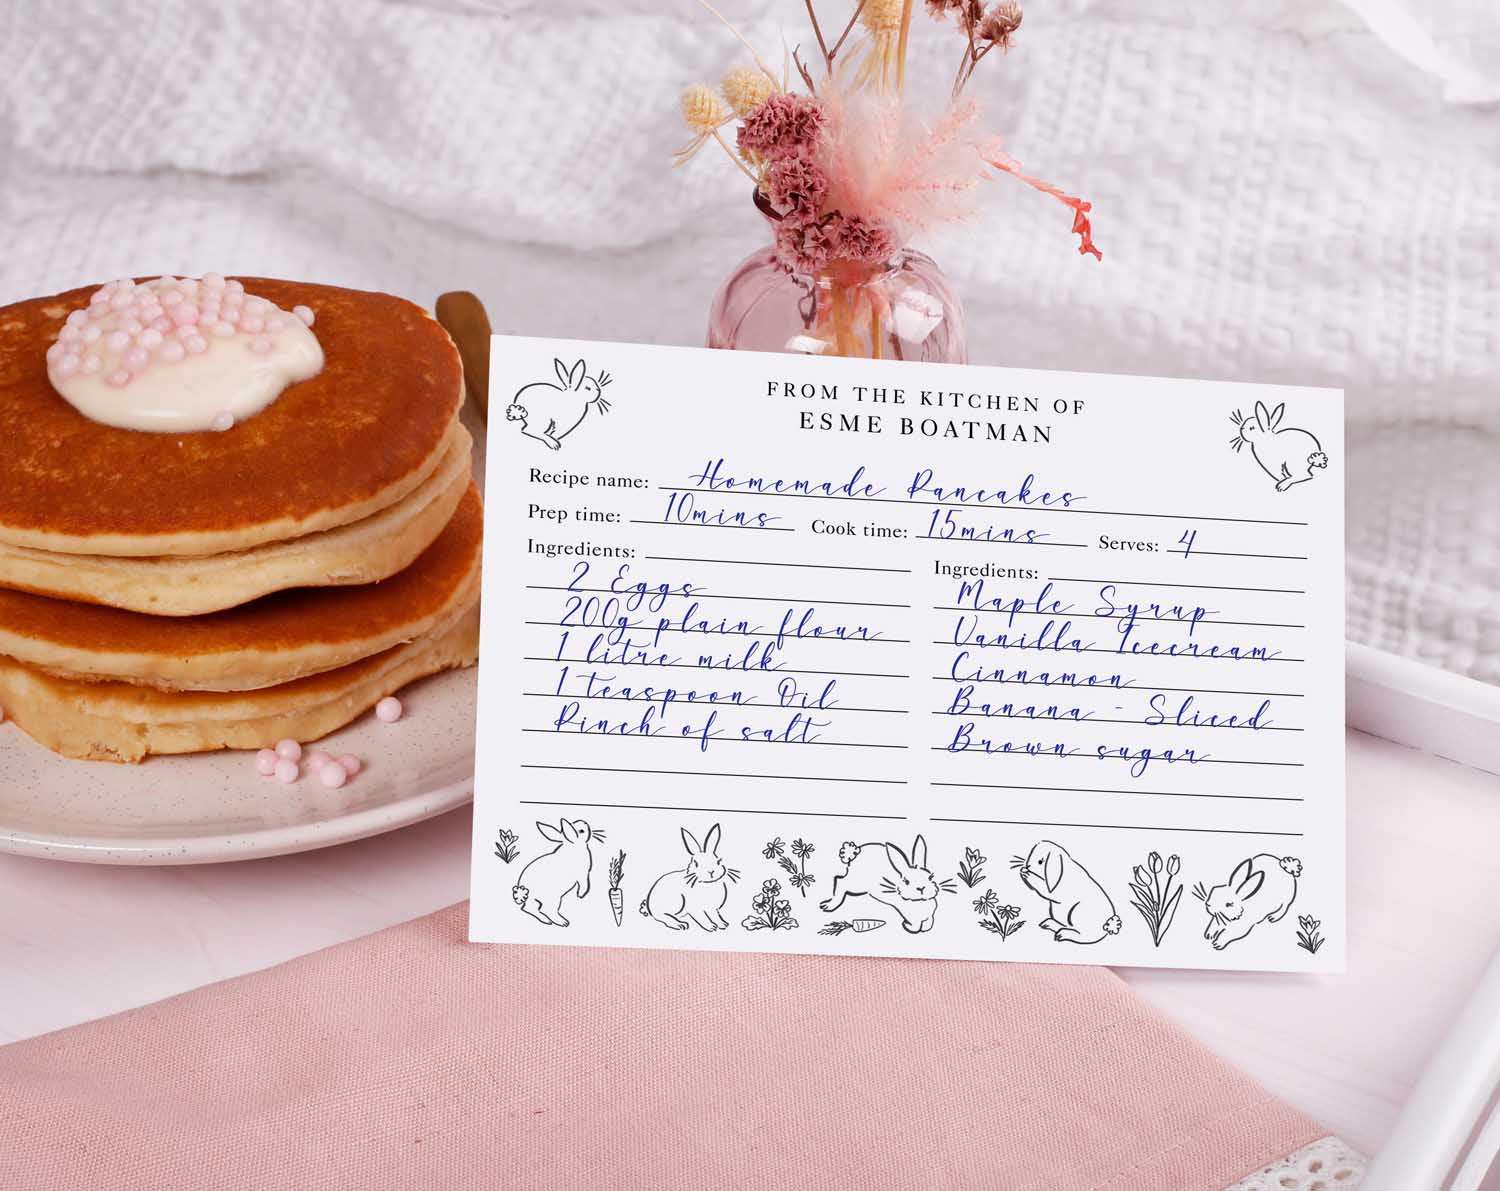 FROM THE KITCHEN OF
ESME BOATMAN
Recipe name: Homemade Pancakes
Prep time: 10mins Cook time: 15mins Serves: 4
Ingredients:
2 Eggs
200g plain flour
1 litre milk
1 teaspoon Oil
Pinch of salt
Ingredients:
Maple Syrup
Vanilla Icecream
Cinnamon
Banana - Sliced
Brown sugar